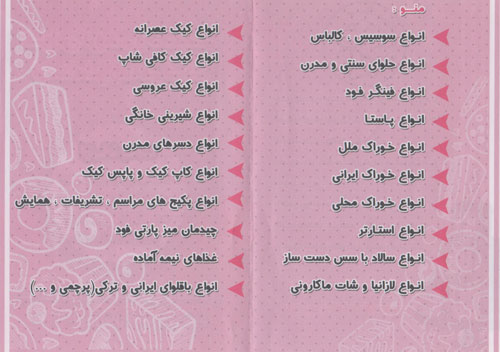 منو :
انواع سوسیس ، کالباس
انواع حلوای سنتی و مدرن
انواع فینگر فود
انواع پاستا
انواع خوراک ملل
انواع خوراک ایرانی
انواع خوراک محلی
انواع استارتر
انواع سالاد با سس دست ساز
انواع لازانیا و شات ماکارونی
انواع کیک عصرانه
انواع کیک کافی شاپ
انواع کیک عروسی
انواع شیرینی خانگی
انواع دسرهای مدرن
انواع کاپ کیک و پاپس کیک
انواع پکیج های مراسم ، تشریفات ، همایش
چیدمان میز پارتی فود
غذاهای نیمه آماده
انواع باقلوای ایرانی و ترکی(پرچمی و ...)